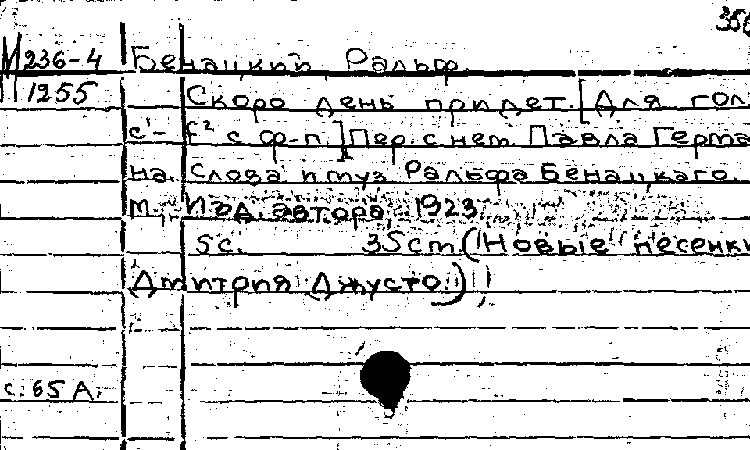 356
М 236-4 Бенацкий Ральф.
1255 Скоро день придет. [Для гол
c¹- f² с ф-п.] Пер. с нем. Павла Герма
на. Слова и муз Ральфа Бенацкаго.
М., Изд. автора, 1923.
5с. 35 ст. ("Новые песенки
Дмитрия Джусто")
с. 65 А.